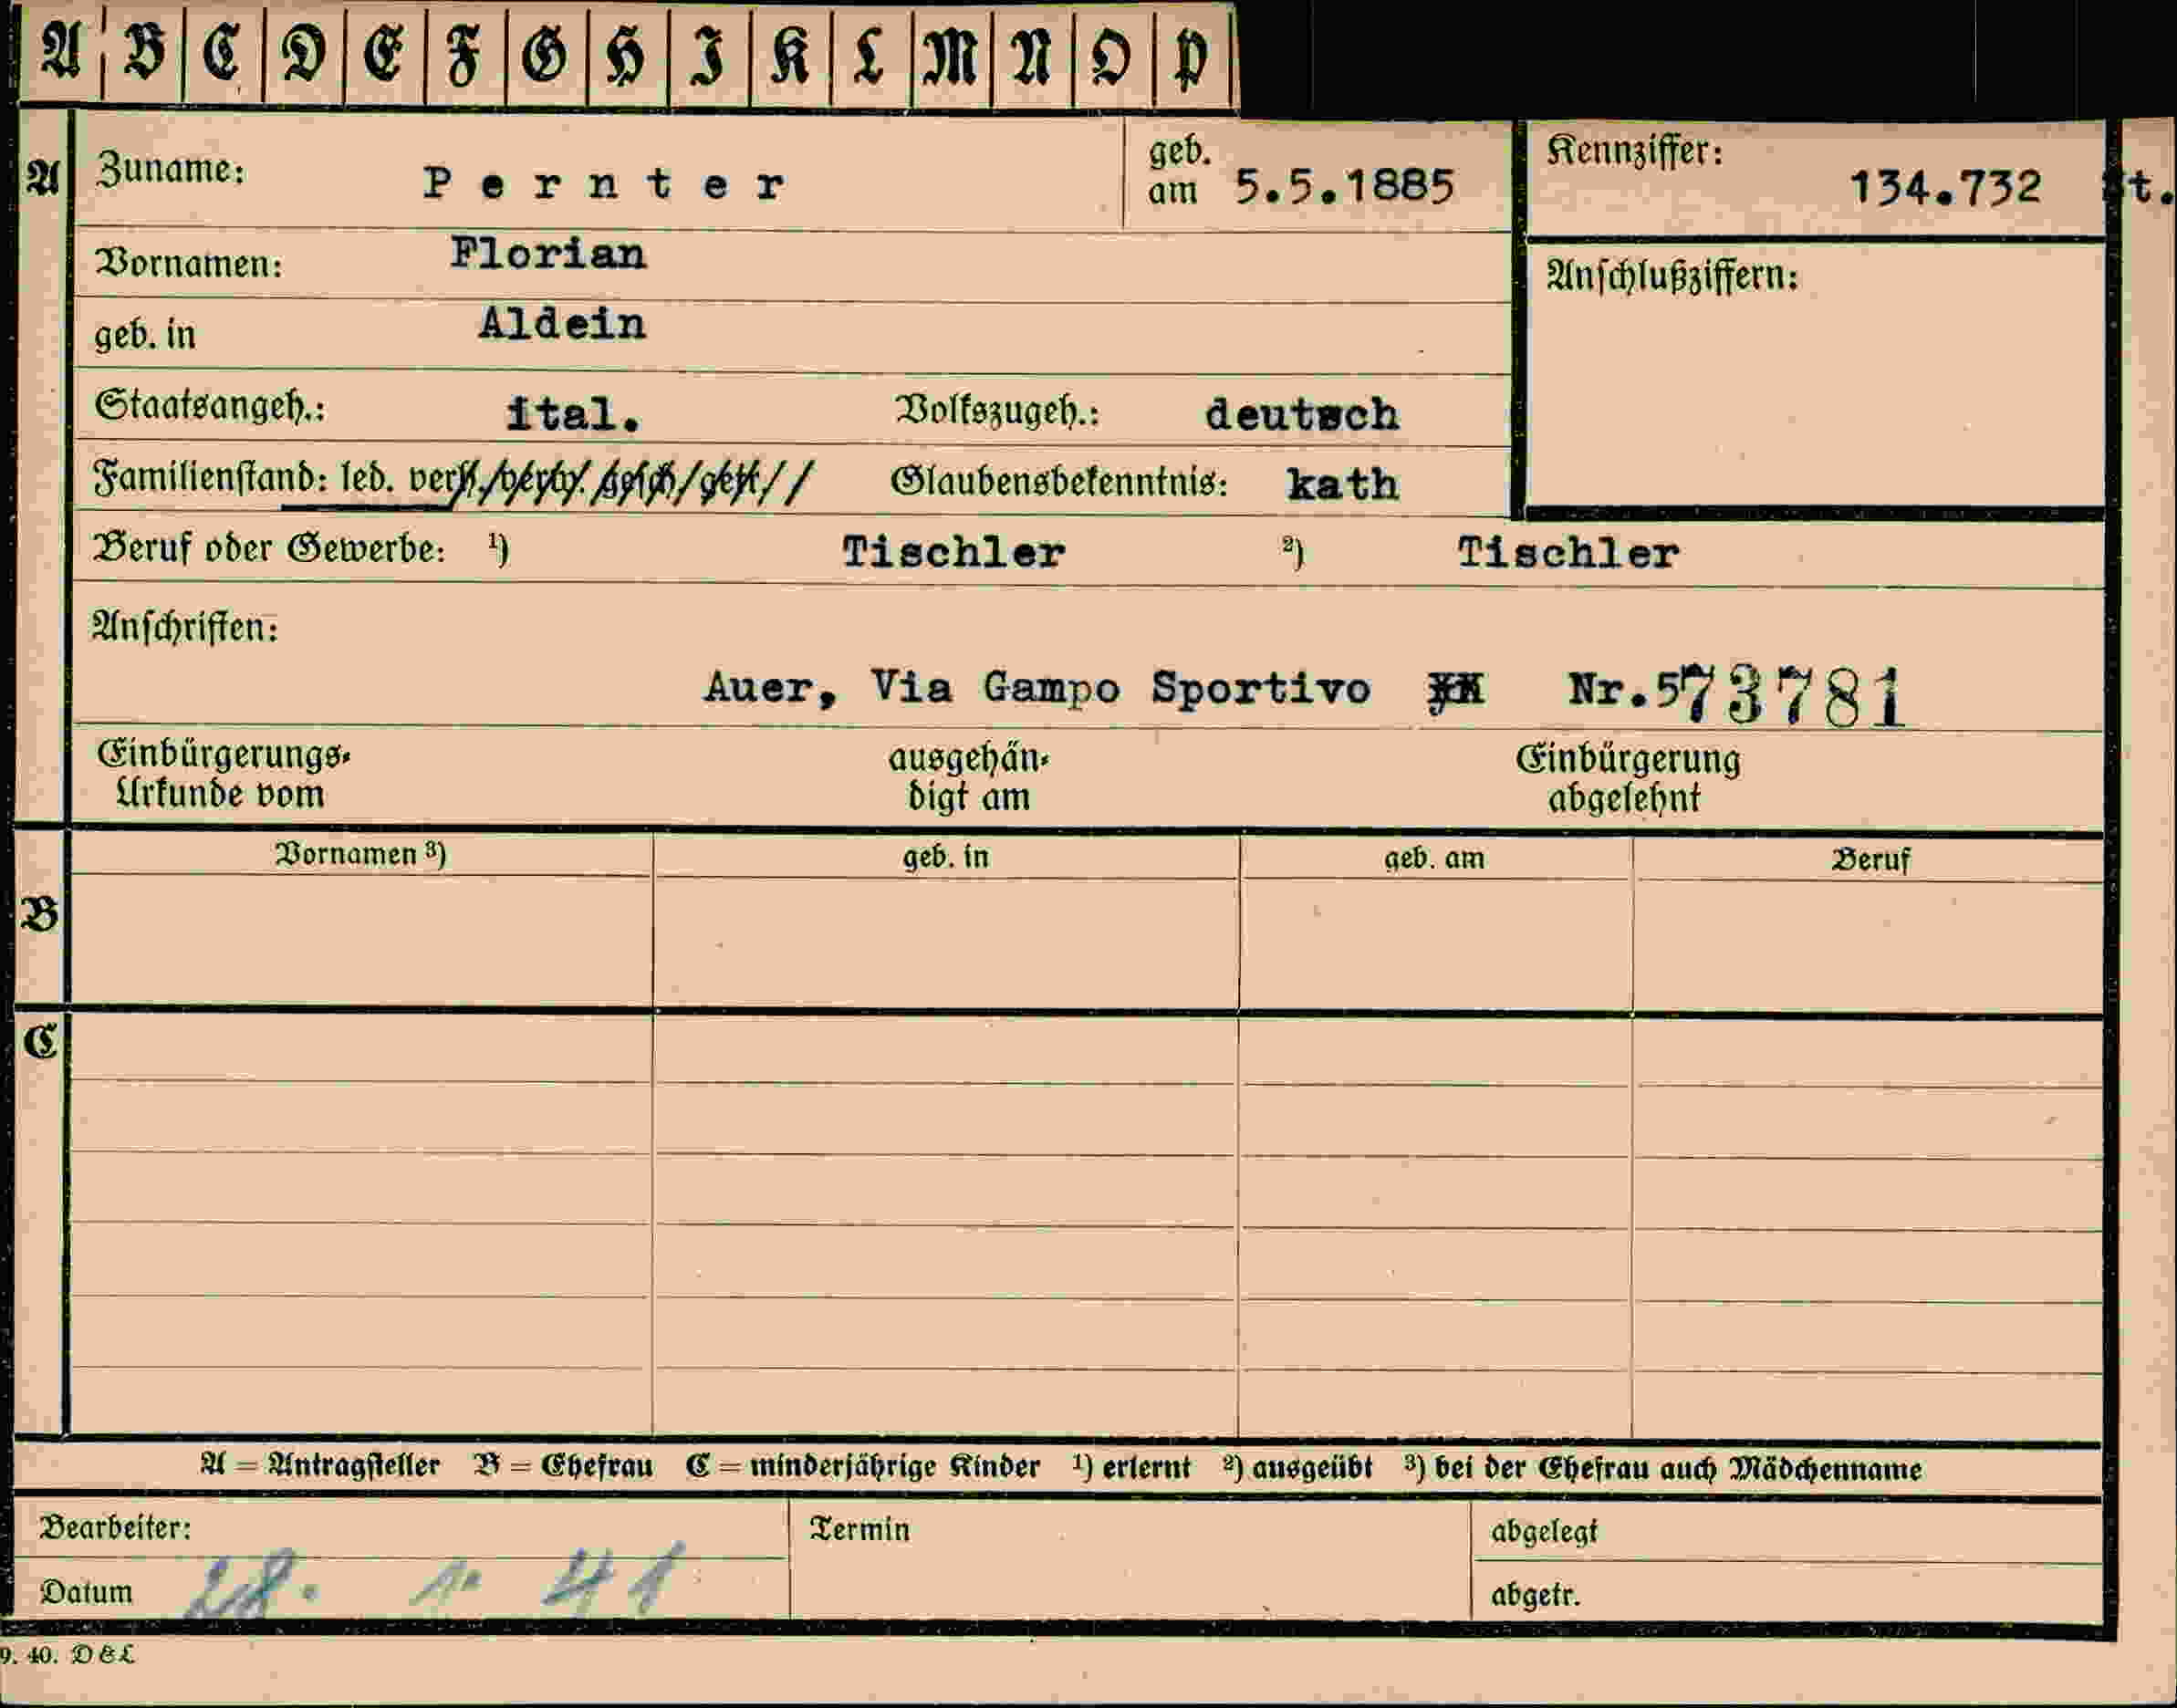 A B C D E F G H I K L M N O P
A Zuname: Pernter geb. am 5.5.1885 Kennziffer: 134.732 St.
Vornamen: Florian Anschlußziffern:
geb. in Aldein
Staatsangeh.: ital. Volkszugeh.: deutsch
Familienstand: led. verh. verw. gesch. get. Glaubensbekenntnis: kath
Beruf oder Gewerbe: ¹) Tischler ²) Tischler
Anschriften:
Auer, Via Gampo Sportivo Nr.573781
Einbürgerungs- ausgehän- Einbürgerung
Urkunde vom digt am abgelehnt
Vornamen ³) geb. in geb. am Beruf
B
C
A = Antragsteller B = Ehefrau C = minderjährige Kinder ¹) erlernt ²) ausgeübt ³) bei der Ehefrau auch Mädchenname
Bearbeiter: Termin abgelegt
Datum 28. 1. 41 abgetr.
9. 40. D & L